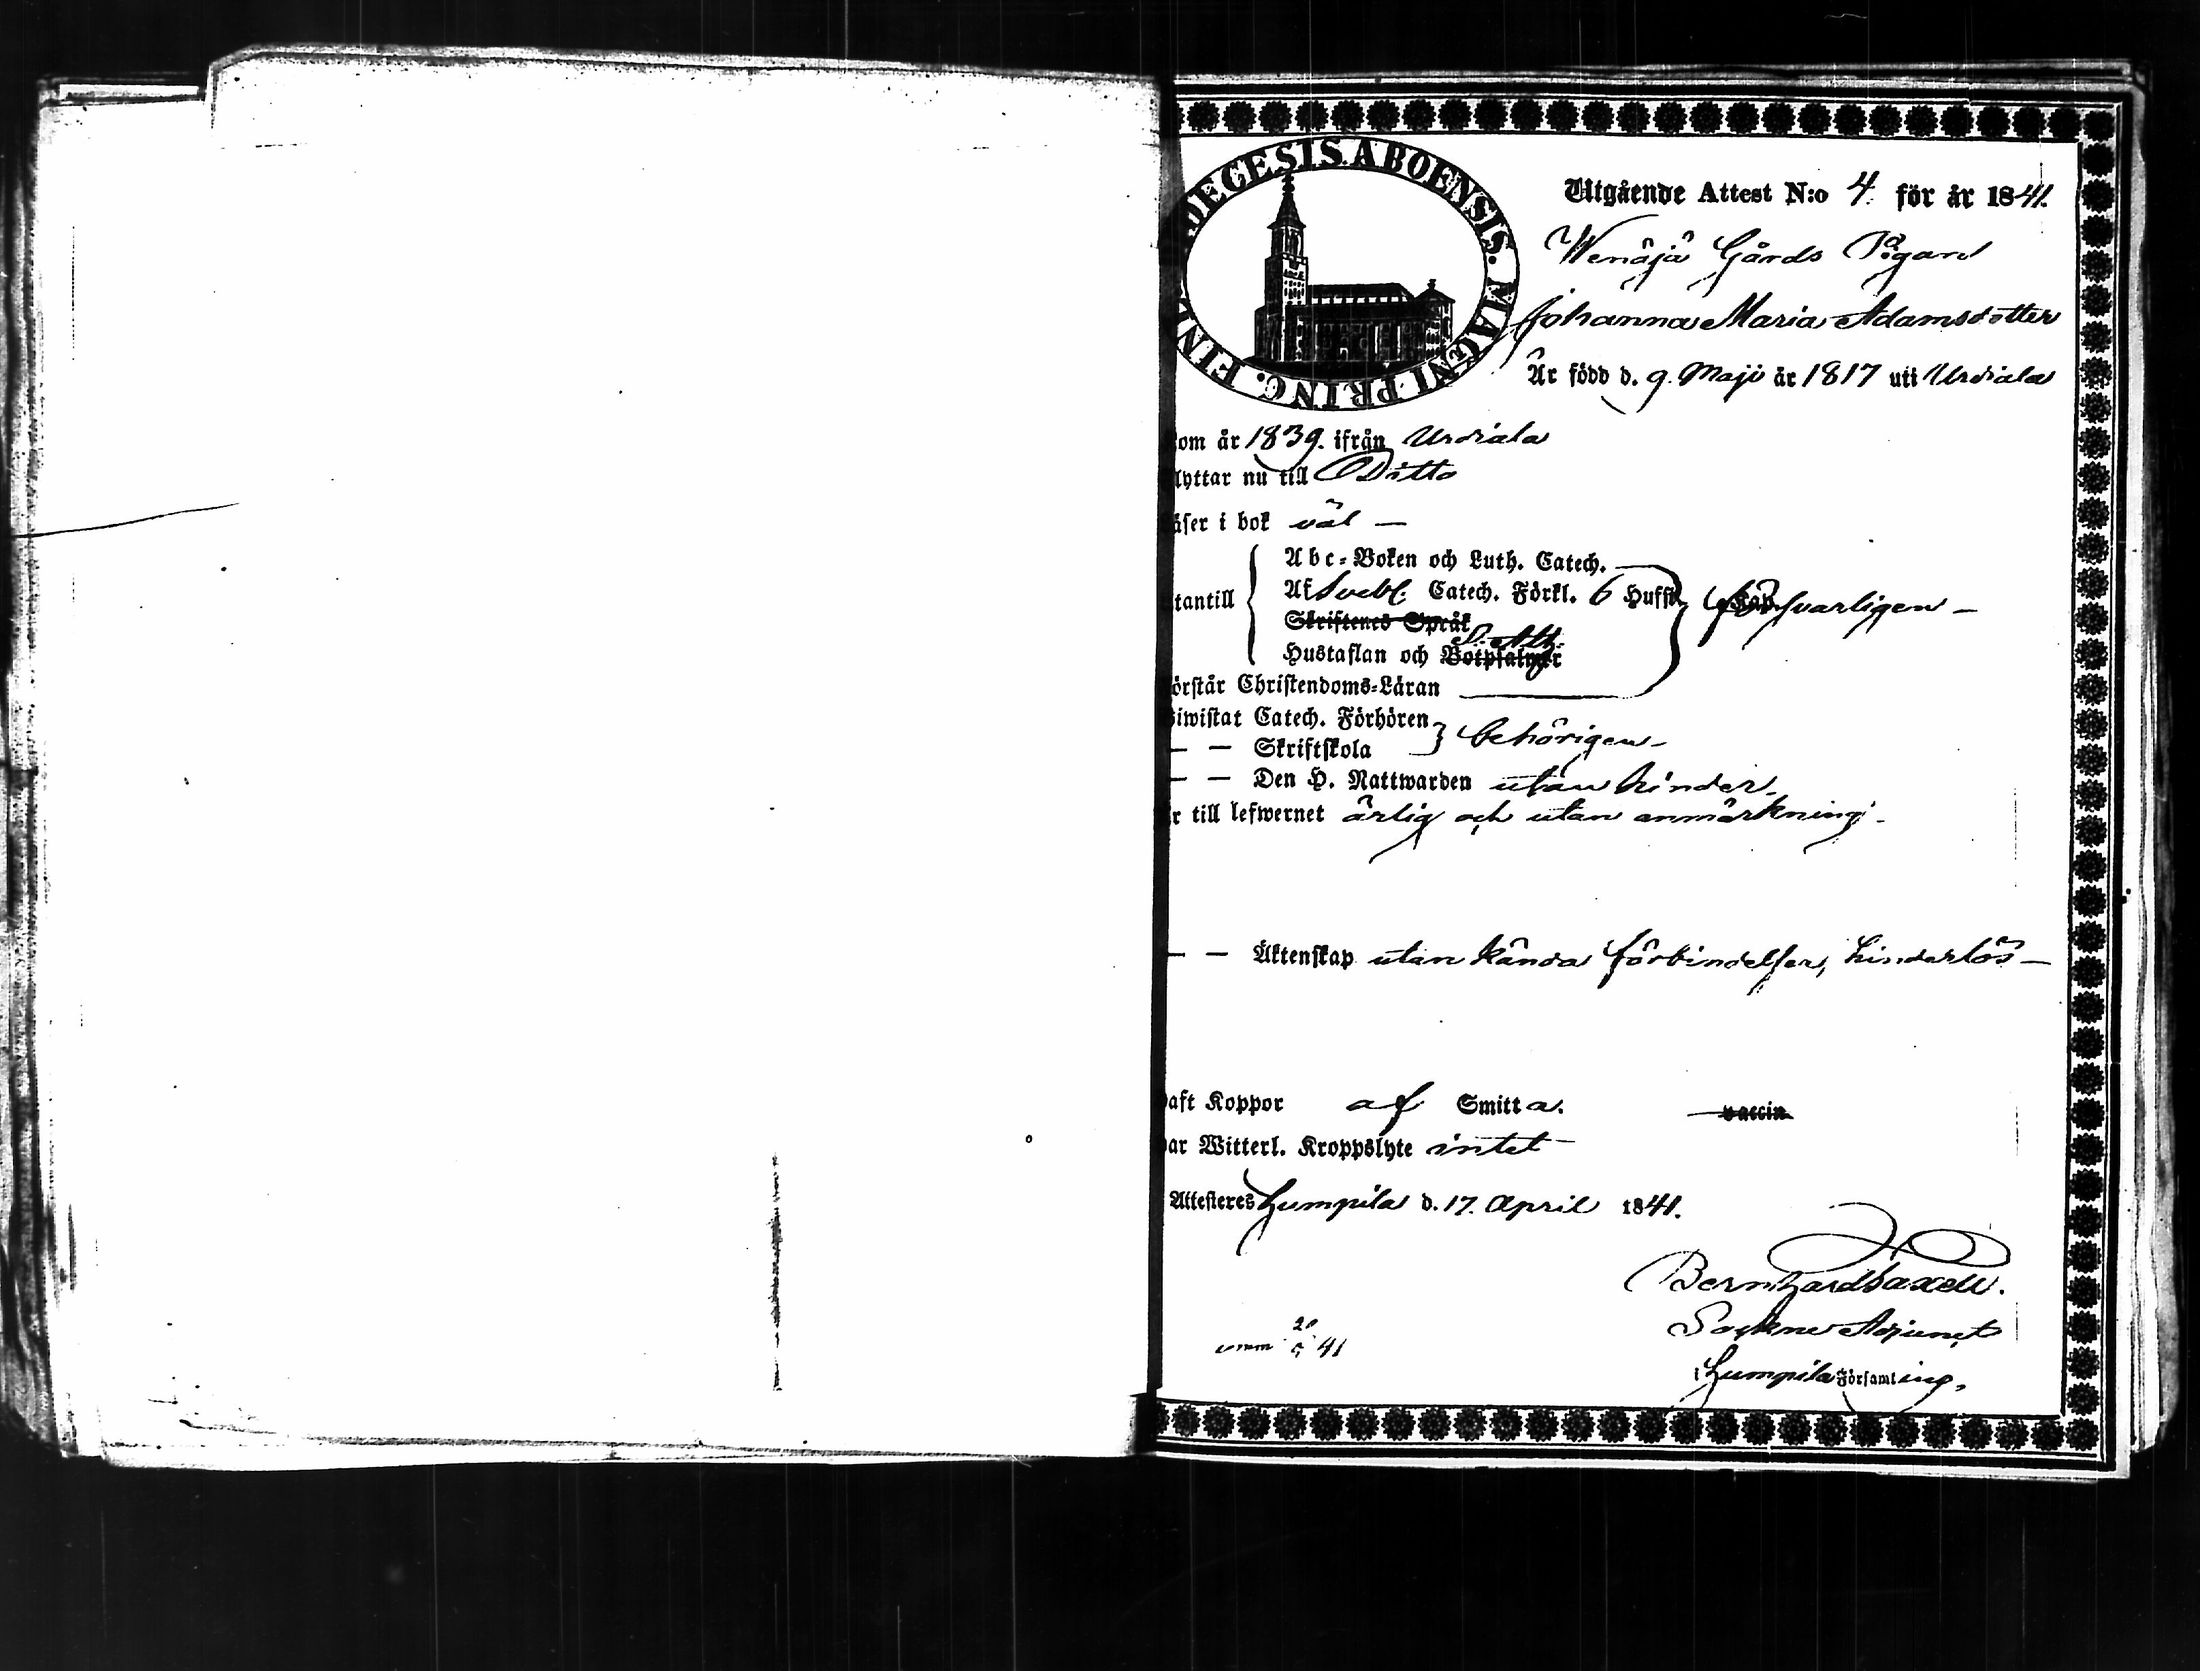 DECESIS ABOENSIS. MAGNI PRINC. FINL
Utgående Attest N:o 4. för år 1841.
Wenäjä Gårds Pigan
Johanna Maria Adamsdotter
Är född d. 9. Maji år 1817 uti Urdiala
kom år 1839. ifrån Urdiala
flyttar nu till Ditto
Läser i bok väl —
utantill
Abc-Boken och Luth. Catech.
Af Svebl. Catech. Förkl. 6 Hufst. Kap. försvarligen —
Skriftenes Språk
S. Ath.
Hustaflan och Botpsalmer
Förstår Christendoms-Läran
Biwistat Catech. Förhören
— — Skriftskola behörigen —
— — Den H. Nattwarden utan hinder.
Är till lefwernet ärlig och utan anmärkning. —
— — Äktenskap utan kända förbindelser, hinderlös —
Haft Koppor af Smitta. vaccin
Har Witterl. Kroppslyte intet
Attesteres Humpila d. 17. April 1841.
Bernhard Saxell.
Sockne Adjunct
i Humpila Församling.
41